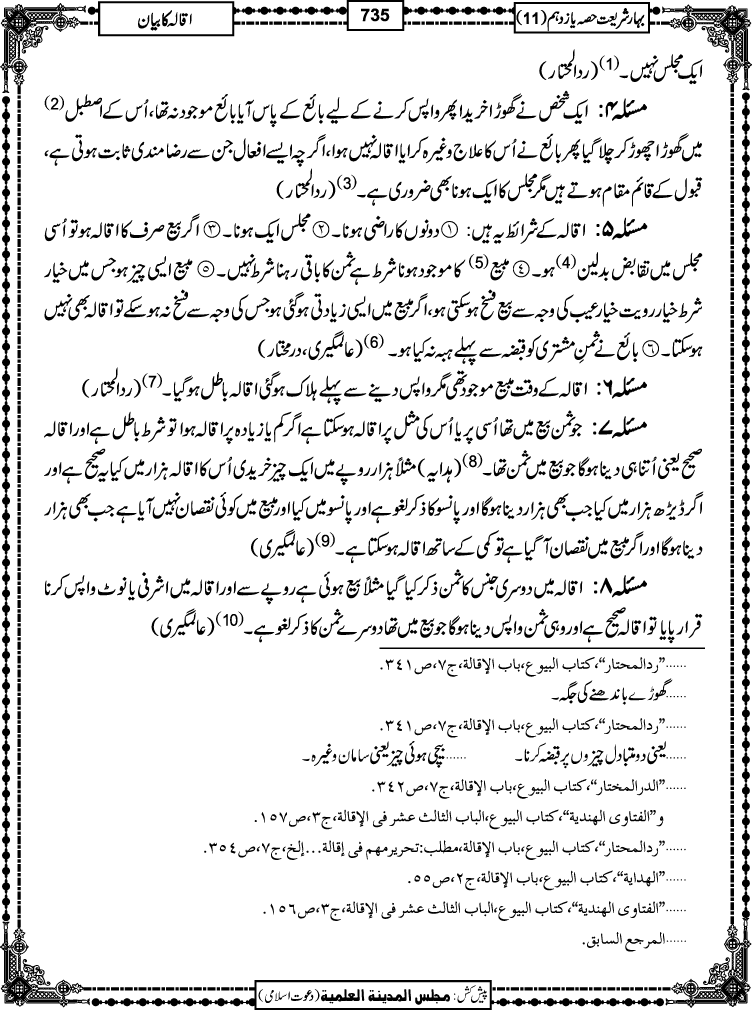 بہارِ شریعت حصہ یازدہم (11)
735
اقالہ کا بیان
ایک مجلس نہیں۔(1) (ردالمحتار)
مسئلہ ۴: ایک شخص نے گھوڑا خریدا پھر واپس کرنے کے لیے بائع کے پاس آیا بائع موجود نہ تھا، اُس کے اصطبل(2)
میں گھوڑا چھوڑ کر چلا گیا پھر بائع نے اُس کا علاج وغیرہ کرایا اقالہ نہیں ہوا، اگرچہ ایسے افعال جن سے رضا مندی ثابت ہوتی ہے،
قبول کے قائم مقام ہوتے ہیں مگر مجلس کا ایک ہونا بھی ضروری ہے۔(3) (ردالمحتار)
مسئلہ ۵: اقالہ کے شرائط یہ ہیں: ① دونوں کا راضی ہونا۔ ② مجلس ایک ہونا۔ ③ اگر بیع صرف کا اقالہ ہو تو اُسی
مجلس میں تقابض بدلین(4) ہو۔ ④ مبیع(5) کا موجود ہونا شرط ہے ثمن کا باقی رہنا شرط نہیں۔ ⑤ مبیع ایسی چیز ہو جس میں خیار
شرط خیار رویت خیار عیب کی وجہ سے بیع فسخ ہوسکتی ہو، اگر مبیع میں ایسی زیادتی ہوگئی ہو جس کی وجہ سے فسخ نہ ہوسکے تو اقالہ بھی نہیں
ہوسکتا۔ ⑥ بائع نے ثمن مشتری کو قبضہ سے پہلے ہبہ نہ کیا ہو۔(6) (عالمگیری، درمختار)
مسئلہ ۶: اقالہ کے وقت مبیع موجود تھی مگر واپس دینے سے پہلے ہلاک ہوگئی اقالہ باطل ہوگیا۔(7) (ردالمحتار)
مسئلہ ۷: جو ثمن بیع میں تھا اُسی پر یا اُس کی مثل پر اقالہ ہوسکتا ہے اگر کم یا زیادہ پر اقالہ ہوا تو شرط باطل ہے اور اقالہ
صحیح یعنی اُتنا ہی دینا ہوگا جو بیع میں ثمن تھا۔(8) (ہدایہ) مثلاً ہزار روپے میں ایک چیز خریدی اُس کا اقالہ ہزار میں کیا یہ صحیح ہے اور
اگر ڈیڑھ ہزار میں کیا جب بھی ہزار دینا ہوگا اور پانسو کا ذکر لغو ہے اور پانسو میں کیا اور مبیع میں کوئی نقصان نہیں آیا ہے جب بھی ہزار
دینا ہوگا اور اگر مبیع میں نقصان آگیا ہے تو کمی کے ساتھ اقالہ ہوسکتا ہے۔(9) (عالمگیری)
مسئلہ ۸: اقالہ میں دوسری جنس کا ثمن ذکر کیا گیا مثلاً بیع ہوئی ہے روپے سے اور اقالہ میں اشرفی یا نوٹ واپس کرنا
قرار پایا تو اقالہ صحیح ہے اور وہی ثمن واپس دینا ہوگا جو بیع میں تھا دوسرے ثمن کا ذکر لغو ہے۔(10) (عالمگیری)
......"ردالمحتار"، کتاب البیوع، باب الإقالة، ج۷، ص۳٤۱.
......گھوڑے باندھنے کی جگہ۔
......"ردالمحتار"، کتاب البیوع، باب الإقالة، ج۷، ص۳٤۱.
......یعنی دو متبادل چیزوں پر قبضہ کرنا۔ ......بیچی ہوئی چیز یعنی سامان وغیرہ۔
......"الدرالمختار"، کتاب البیوع، باب الإقالة، ج۷، ص۳٤۲.
و"الفتاوی الهندیة"، کتاب البیوع، الباب الثالث عشر فی الإقالة، ج۳، ص۱٥۷.
......"ردالمحتار"، کتاب البیوع، باب الإقالة، مطلب: تحریرمهم فی إقالة...إلخ، ج۷، ص۳٥٤.
......"الهدایة"، کتاب البیوع، باب الإقالة، ج۲، ص٥٥.
......"الفتاوی الهندیة"، کتاب البیوع، الباب الثالث عشر فی الإقالة، ج۳، ص۱٥٦.
......المرجع السابق.
پیش کش: مجلس المدینة العلمیة (دعوت اسلامی)